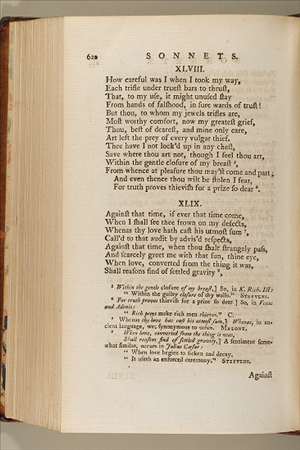 620 SONNETS.
XLVIII.
How careful was I when I took my way,
Each trifle under trueſt bars to thruſt,
That, to my uſe, it might unuſed ſtay
From hands of falſhood, in ſure wards of truſt!
But thou, to whom my jewels trifles are,
Moſt worthy comfort, now my greateſt grief,
Thou, beſt of deareſt, and mine only care,
Art left the prey of every vulgar thief.
Thee have I not lock'd up in any cheſt,
Save where thou art not, though I feel thou art,
Within the gentle cloſure of my breaſt ⁵,
From whence at pleaſure thou may'ſt come and part;
And even thence thou wilt be ſtolen I fear,
For truth proves thieviſh for a prize ſo dear ⁶.
XLIX.
Againſt that time, if ever that time come,
When I ſhall ſee thee frown on my defects,
Whenas thy love hath caſt his utmoſt ſum ⁷,
Call'd to that audit by advis'd reſpects,
Againſt that time, when thou ſhalt ſtrangely paſs,
And ſcarcely greet me with that ſun, thine eye,
When love, converted from the thing it was,
Shall reaſons find of ſettled gravity ⁸,
⁵ Within the gentle cloſure of my breaſt,] So, in K. Rich. III:
" Within the guilty cloſure of thy walls." STEEVENS.
⁶ For truth proves thieviſh for a prize ſo dear.] So, in Venus
and Adonis:
" Rich preys make rich men thieves." C.
⁷ Whenas thy love has caſt his utmoſt ſum,] Whenas, in an-
cient language, was ſynonymous to when. MALONE.
⁸ When love, converted from the thing it was,
Shall reaſons find of ſettled gravity,] A ſentiment ſome-
what ſimilar, occurs in Julius Cæſar:
" When love begins to ſicken and decay,
" It uſeth an enforced ceremony." STEEVENS.
Againſt